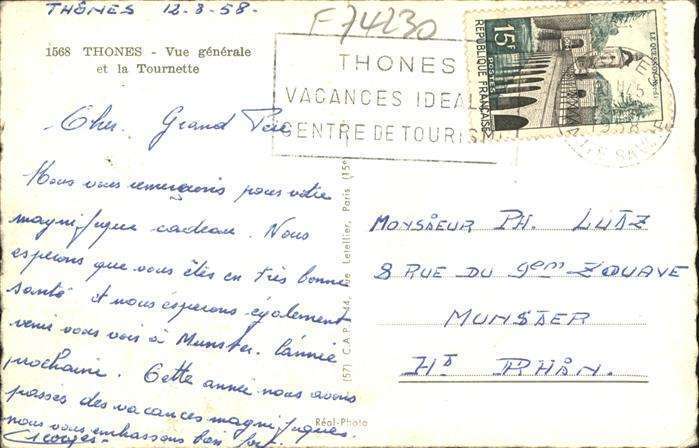 THÔNES 12-8-58.
F 74230
1568 THONES - Vue générale
et la Tournette
THONES
VACANCES IDEAL
CENTRE DE TOURISM
15F
REPUBLIQUE FRANÇAISE
POSTES
LE QUESNOY
Cher Grand Père
Nous vous remercions pour votre
magnifique cadeau. Nous
esperons que vous êtes en très bonne
santé et nous esperons également
venir vous voir à Munster l'année
prochaine. Cette année nous avons
passés des vacances magnifiques.
nous vous embrassons bien fort.
Georges
MONSIEUR PH. LUTZ
8 RUE DU 9em ZOUAVE
MUNSTER
HT RHIN.
(57) C.A.P. 44, Letellier, Paris (15e
Réal-Photo